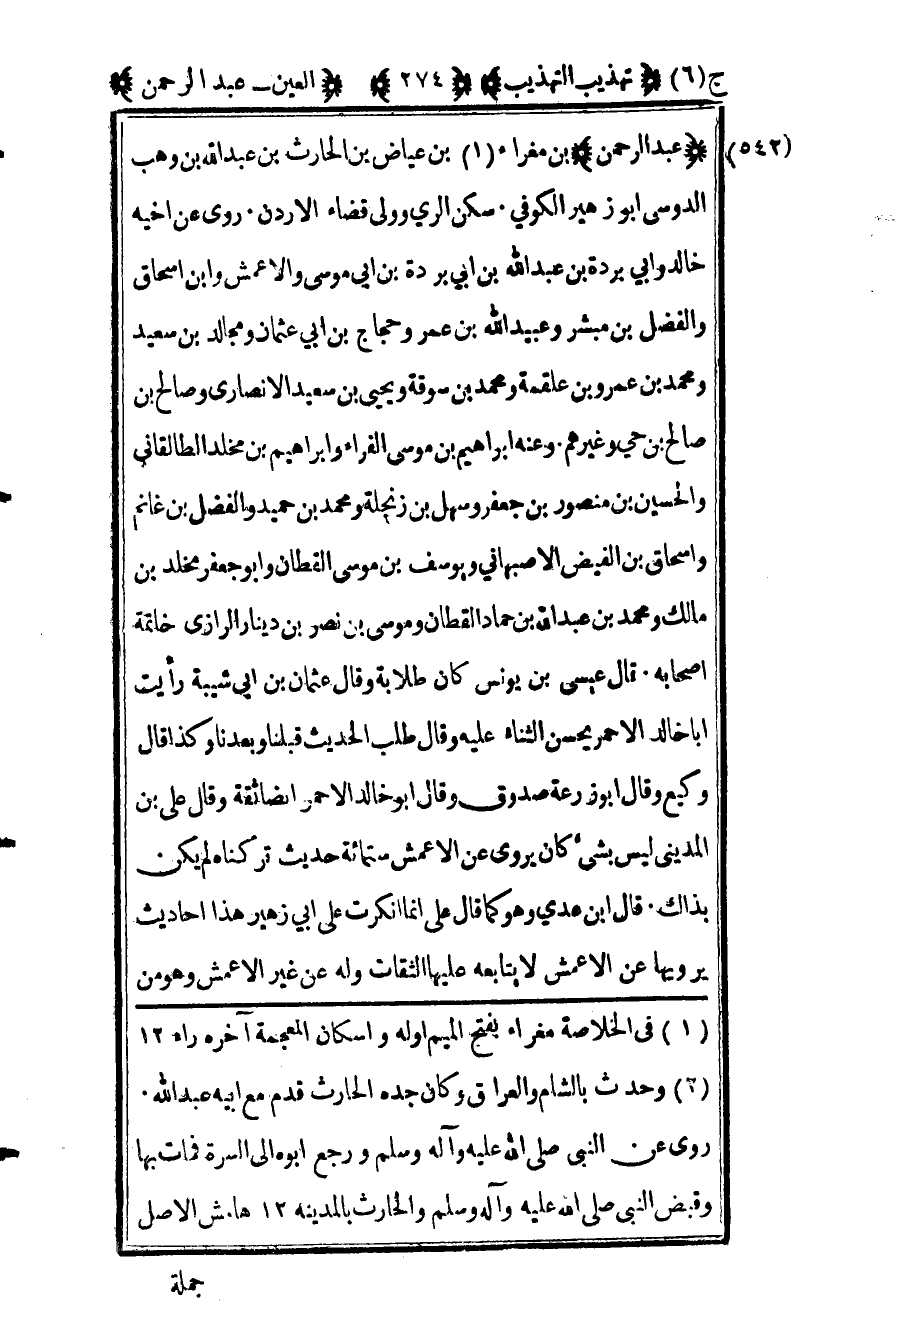 ج(٦) ﴿تهذيب التهذيب﴾ ﴿٢٧٤﴾ ﴿العين ـ عبد الرحمن﴾
(٥٤٢) ﴿عبد الرحمن﴾ بن مغراء (١) بن عياض بن الحارث بن عبد الله بن وهب
الدوسى ابو زهير الكوفي· سكن الري وولى قضاء الاردن· روى عن اخيه
خالد وابي بردة بن عبد الله بن ابي بردة بن ابي موسى والاعمش وابن اسحاق
والفضل بن مبشر وعبيد الله بن عمر وحجاج بن ابي عثمان ومجالد بن سعيد
ومحمد بن عمرو بن علقمة ومحمد بن سوقة ويحيى بن سعيد الانصارى وصالح بن
صالح بن حي وغيرهم· وعنه ابراهيم بن موسى الفراء وابراهيم بن مخلد الطالقاني
والحسين بن منصور بن جعفر وسهل بن زنجلة ومحمد بن حميد والفضل بن غانم
واسحاق بن الفيض الاصبهاني ويوسف بن موسى القطان وابو جعفر مخلد بن
مالك ومحمد بن عبد الله بن حماد القطان وموسى بن نصر بن دينار الرازى خاتمة
اصحابه· قال عيسى بن يونس كان طلابة وقال عثمان بن ابي شيبة رأيت
ابا خالد الاحمر يحسن الثناء عليه وقال طلب الحديث قبلنا وبعدنا وكذا قال
وكيع وقال ابو زرعة صدوق وقال ابو خالد الاحمر ايضا ثقة وقال علي بن
المدينى ليس بشيء كان يروى عن الاعمش ستمائة حديث تركناه لم يكن
بذاك· قال ابن عدي وهو كما قال علي انما انكرت على ابي زهير هذا احاديث
يرويها عن الاعمش لا يتابعه عليها الثقات وله عن غير الاعمش وهو من
(١) فى الخلاصة مغراء بفتح الميم اوله و اسكان المعجمة آخره راء ١٢
(٢) وحدث بالشام والعراق وكان جده الحارث قدم مع ابيه عبد الله·
روى عن النبي صلى الله عليه وآله وسلم و رجع ابوه الى السرة فمات بها
وقبض النبى صلى الله عليه وآله وسلم والحارث بالمدينه ١٢ هامش الاصل
جملة